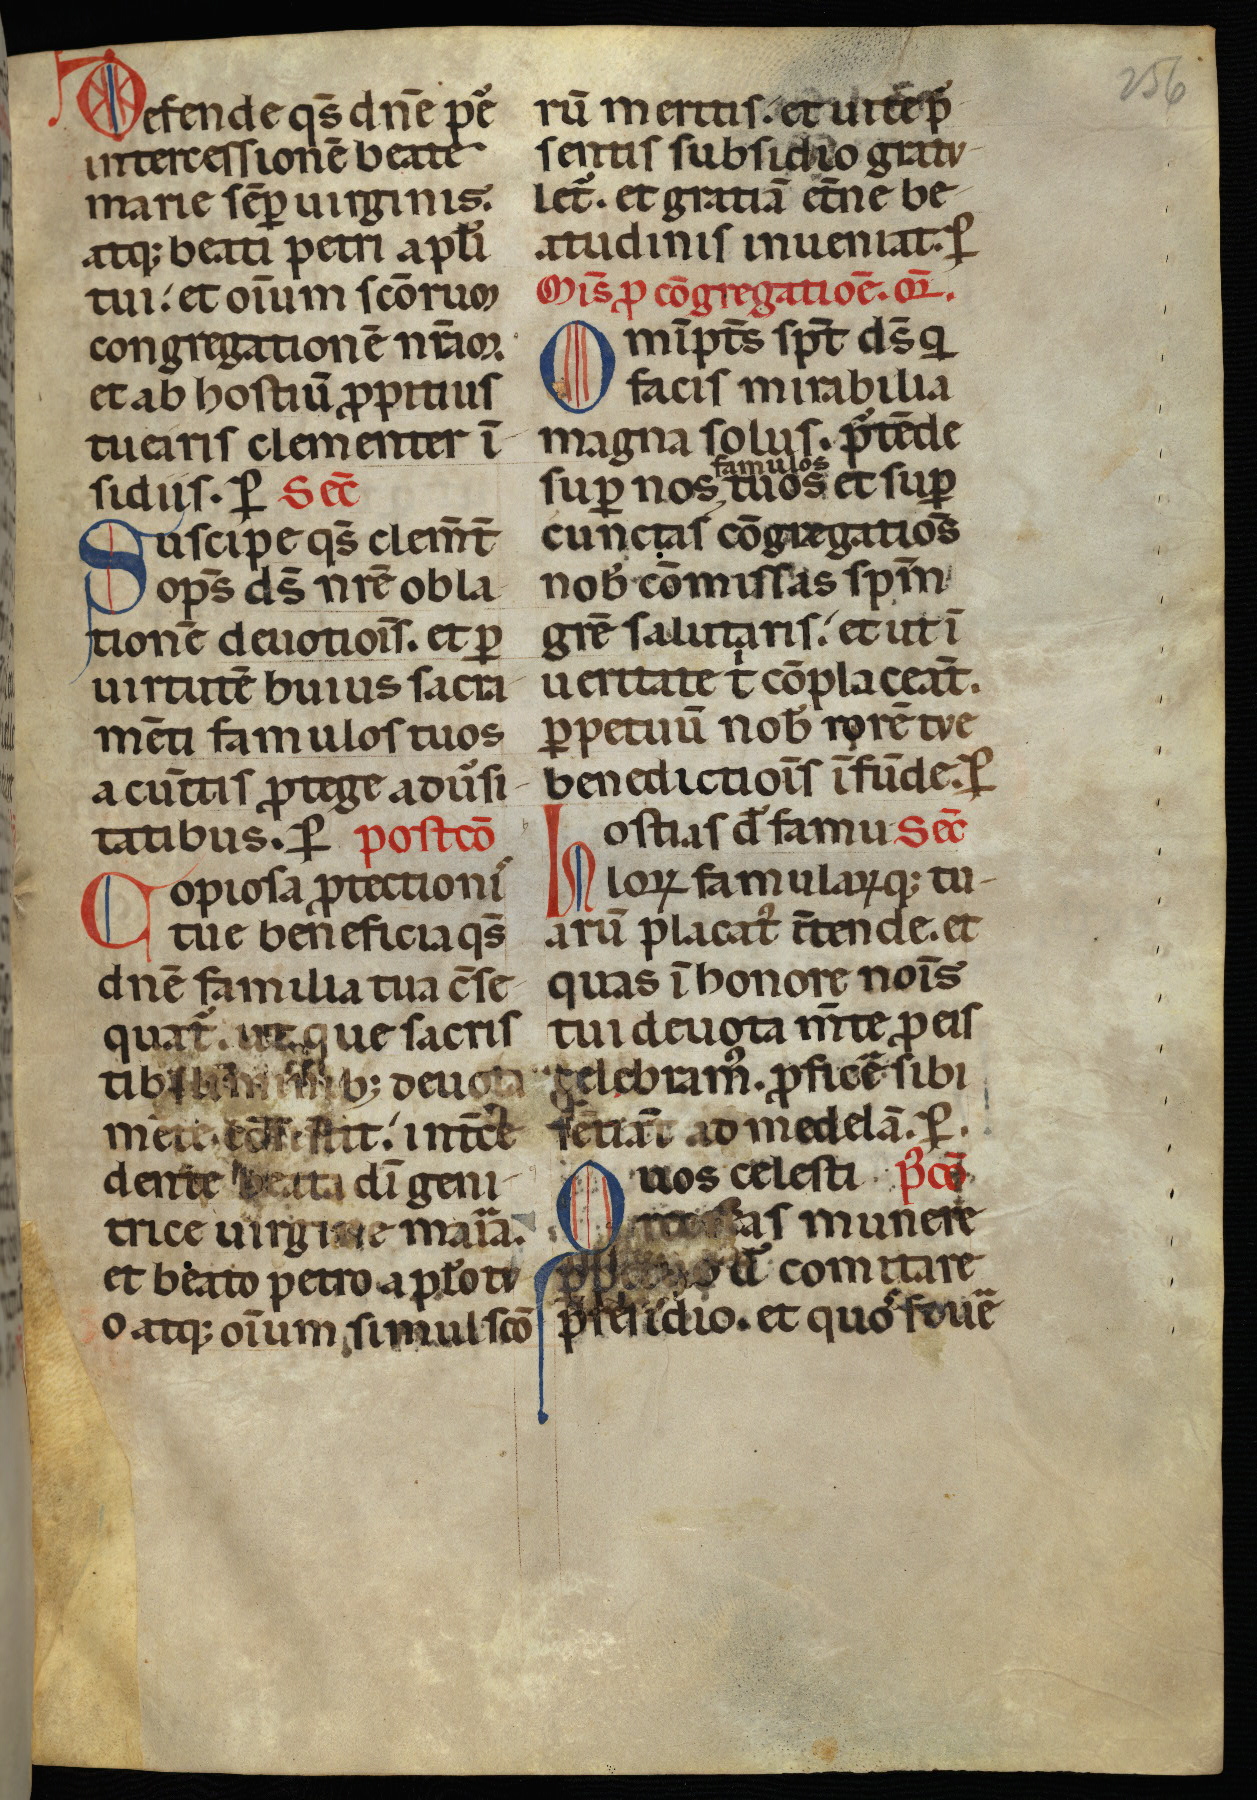 256
Defende qs̄ dn̄e pc̄
intercessionē beate
marie sēꝑ uirginis.
atq; beati petri apl̄i
tui. et oīum scōruꝫ
congregationē nr̄aꝫ.
et ab hostiū ꝓpitius
tuearis clementer ī
sidiis. ꝑ Sec̄
Suscipe qs̄ clem̄t̄
op̄s ds̄ nr̄e obla
tionē deuotiois̄. et ꝑ
uirtutē huius sacra
mēti famulos tuos
a cūctis ꝓtege aduˢsi
tatibus. ꝑ postcō
Copiosa ꝓtectioni
tue beneficia qs̄
dn̄e familia tua c̄se
quat᷑. ut que sacris
tib; deuota
mēte. int̄ce
dente beata dī geni
trice uirgine maīa.
et beato petro apl̄o tu
o atq; oīum simul scō
rū meritis. et uite p̄
sentis subsidio gratu
let᷑. et gratiā et̄ne be
atudinis inueniat. ꝑ
Mis̄ ꝓ cōgregatioē. or̄.
Omīpt̄s sp̄t ds̄ q
facis mirabilia
magna solus. p̄tēde
suꝑ nos famulos tuos et suꝑ
cunctas cōgregatiōs
nob̄ cōmissas spm̄
gr̄e salutaris. et ut ī
ueritate t̄ cōplaceāt.
ꝑpetuū nob̄ rorē tue
benedictiois̄ īfūde. ꝑ
Hostias d̄ famu Sec̄
loꝝ famulaꝝq; tu
arū placat᷑ ītende. et
quas ī honore nois̄
tui deuota mt̄e ꝓ eis
celebram᷒. ꝓficē sibi
sētiāt ad medelā. ꝑ.
Quos celesti p̄cō
recreas munere
d̄ comitare
p̄sidio. et quos fouē